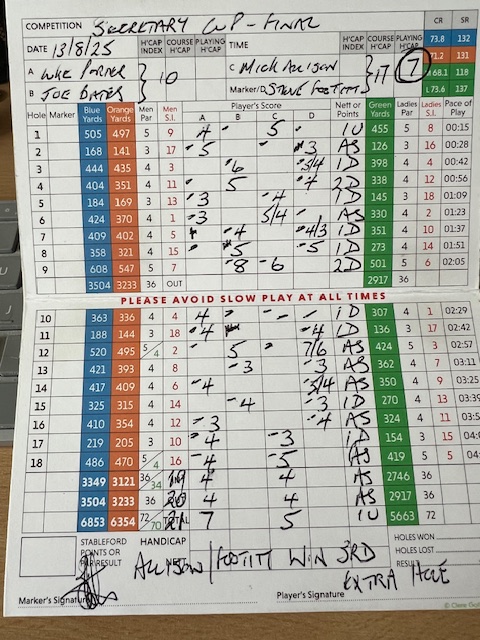 COMPETITION SECRETARY CUP - FINAL
DATE 13/8/25 H'CAP INDEX COURSE H'CAP PLAYING H'CAP TIME H'CAP INDEX COURSE H'CAP PLAYING H'CAP CR SR
73.8 132
71.2 131
68.1 118
L 73.6 137
A LUKE PORTER } 10 C MICK ALLISON } 17 (7)
B JOE BATES Marker/D STEVE FOOTITT
Hole Marker Blue Yards Orange Yards Men Par Men S.I. Player's Score A B C D Nett or Points Green Yards Ladies Par Ladies S.I. Pace of Play
1 505 497 5 9 4 - 5 - 1U 455 5 8 00:15
2 168 141 3 17 - 5 - 3 AS 126 3 16 00:28
3 444 435 4 3 - 6 - 5/4 1D 398 4 4 00:42
4 404 351 4 11 - 5 - 4 2D 338 4 12 00:56
5 184 169 3 13 - 3 - 4 1D 145 3 18 01:09
6 424 370 4 1 - 3 5/4 - AS 330 4 2 01:23
7 409 402 4 5 - 4 - 4/3 1D 351 4 10 01:37
8 358 321 4 15 - 5 - 5 1D 273 4 14 01:51
9 608 547 5 7 - 8 - 6 2D 501 5 6 02:05
3504 3233 36 OUT 2917 36
PLEASE AVOID SLOW PLAY AT ALL TIMES
10 363 336 4 4 4 - - - 1D 307 4 1 02:29
11 188 144 3 18 4 - 4 1D 136 3 17 02:42
12 520 495 5/4 2 - 5 - 7/6 AS 424 5 3 02:57
13 421 393 4 8 - 3 - 3 AS 362 4 7 03:11
14 417 409 4 6 - 4 - 5/4 AS 350 4 9 03:25
15 325 315 4 14 - 4 - 3 1D 270 4 13
16 410 354 4 12 - 3 - 4 AS 324 4 11
17 219 205 3 10 - 4 - 3 1D 154 3 15
18 486 470 5/4 16 - 4 - 5 AS 419 5 5
3349 3121 36/34 19 4 4 AS 2746 36
3504 3233 36 20 4 4 AS 2917 36
6853 6354 72/70 TOTAL 21 7 5 1U 5663 72
STABLEFORD POINTS OR PAR RESULT HANDICAP NETT HOLES WON
HOLES LOST
RESULT
ALLISON / FOOTITT WIN 3RD
EXTRA HOLE
Marker's Signature Player's Signature